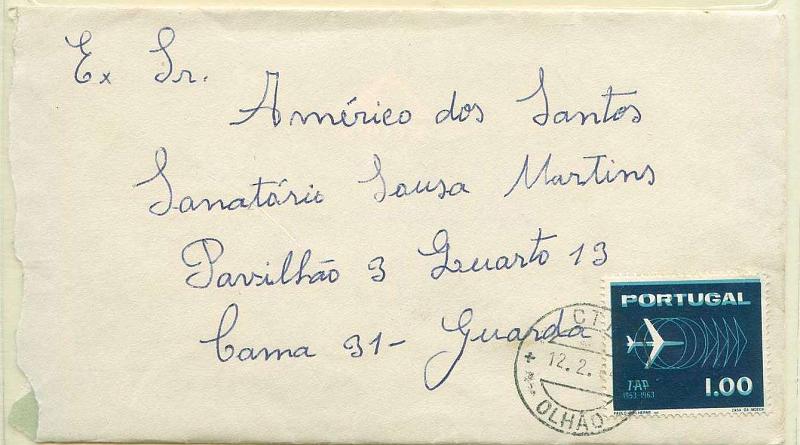 Ex Sr.
Américo dos Santos
Sanatório Sousa Martins
Pavilhão 3 Quarto 13
Cama 31- Guarda
CT
12.2.
OLHÃO
PORTUGAL
TAP
1953-1963
1.00
CASA DA MOEDA